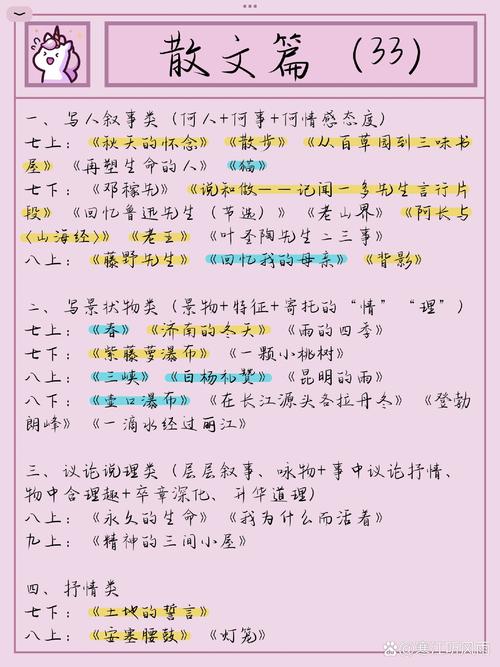 散文篇（33）
一、写人叙事类（何人+何事+何情感态度）
七上：《秋天的怀念》《散步》《从百草园到三味书
屋》《再塑生命的人》《猫》
七下：《邓稼先》《说和做——记闻一多先生言行片
段》《回忆鲁迅先生（节选）》《老山界》《阿长与
〈山海经》《老王》《叶圣陶先生二三事》
八上：《藤野先生》《回忆我的母亲》《背影》
二、写景状物类（景物+特征+寄托的“情”“理”）
七上：《春》《济南的冬天》《雨的四季》
七下：《紫藤萝瀑布》《一颗小桃树》
八上：《三峡》《白杨礼赞》《昆明的雨》
八下：《壶口瀑布》《在长江源头各拉丹冬》《登勃
朗峰》《一滴水经过丽江》
三、议论说理类（层层叙事、咏物+事中议论抒情、
物中含理趣+卒章深化、升华道理）
八上：《永久的生命》《我为什么而活着》
九上：《精神的三间小屋》
四、抒情类
七下：《土地的誓言》
八上：《安塞腰鼓》《灯笼》
@寒江听风雨